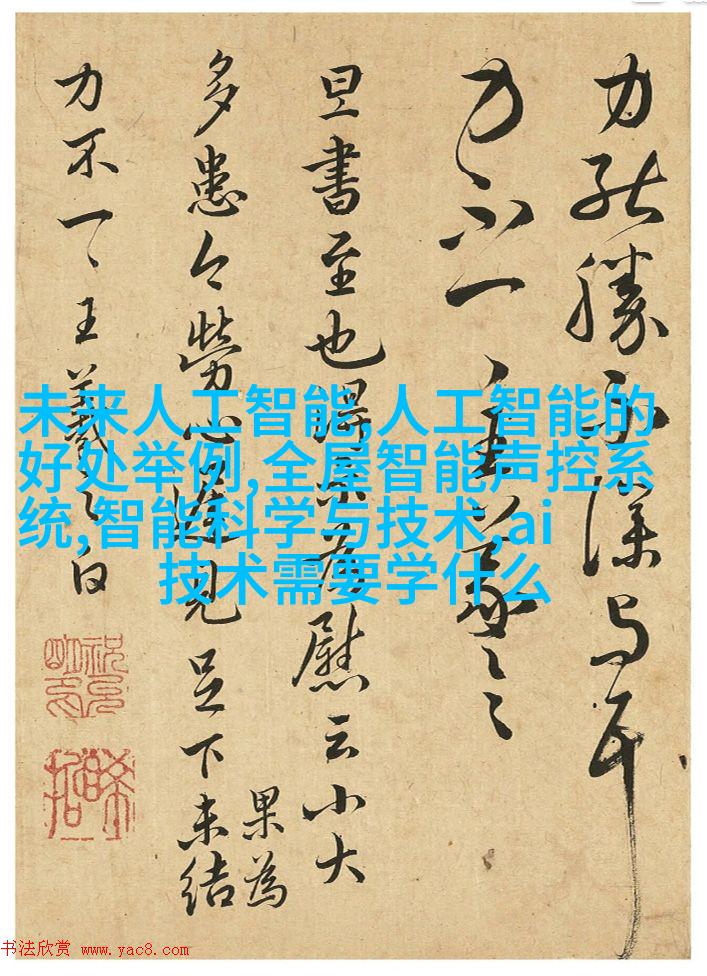 力不一
旦書至也得示為慰云小大
多患念勞心遲見足下未結
果為
力不一一王羲之白
未来人工智能,人工智能的
好处举例,全屋智能声控系
统,智能科学与技术,ai
技术需要学什么
书法欣赏 www.yac8.com